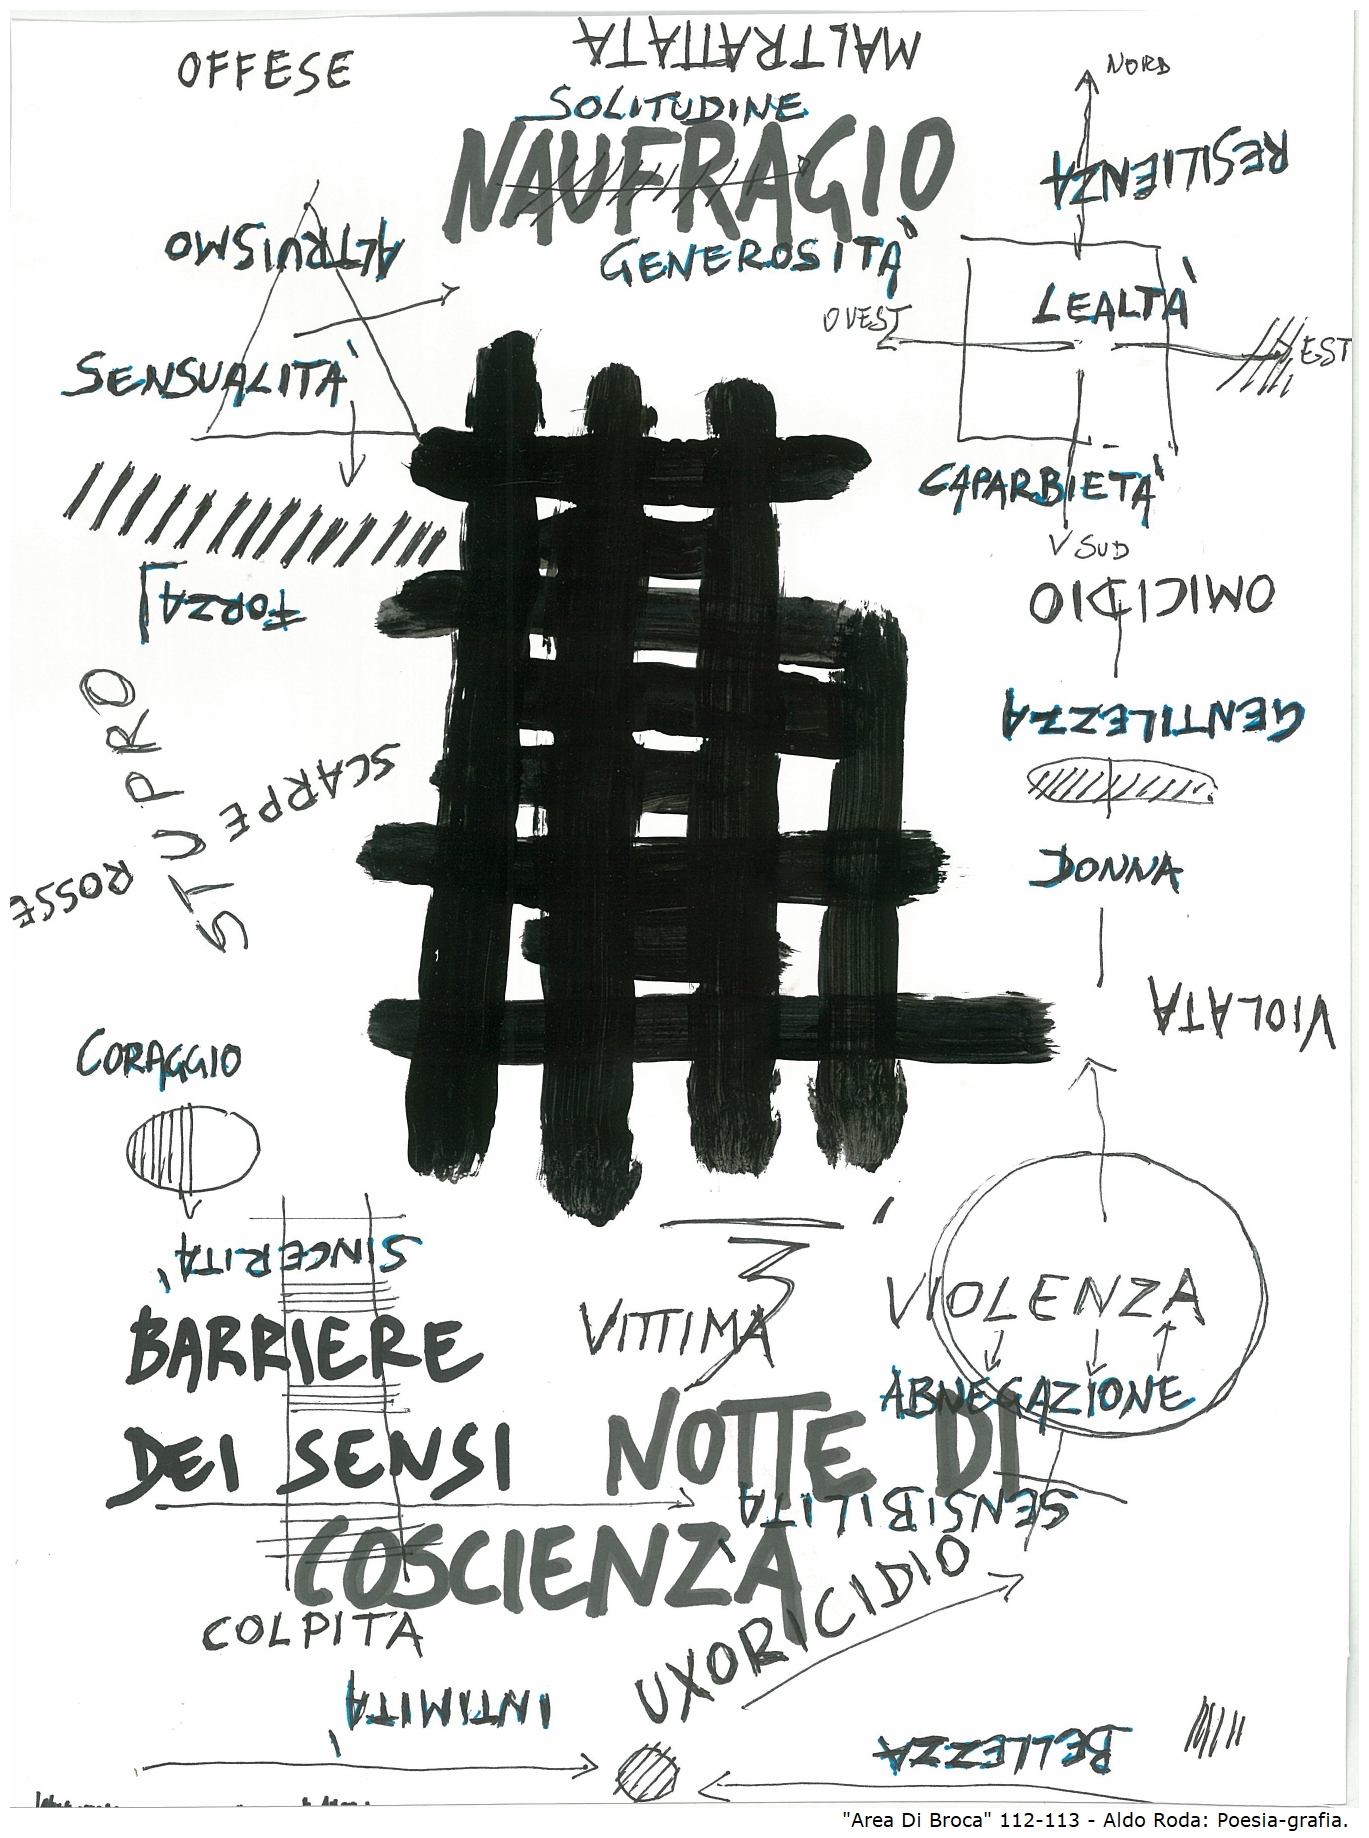 MALTRATTATA
OFFESE
NORD
SOLITUDINE
NAUFRAGIO
RESILIENZA
ALTRUISMO
GENEROSITÀ
LEALTÀ
OVEST
EST
SENSUALITÀ
CAPARBIETÀ
SUD
FORZA
OMICIDIO
GENTILEZZA
STUPRO
SCARPE
ROSSE
DONNA
VIOLATA
CORAGGIO
SINCERITÀ
VIOLENZA
BARRIERE
VITTIMA
ABNEGAZIONE
DEI SENSI
NOTTE DI
SENSIBILITÀ
COSCIENZA
UXORICIDIO
COLPITA
INTIMITÀ
BELLEZZA
"Area Di Broca" 112-113 - Aldo Roda: Poesia-grafia.